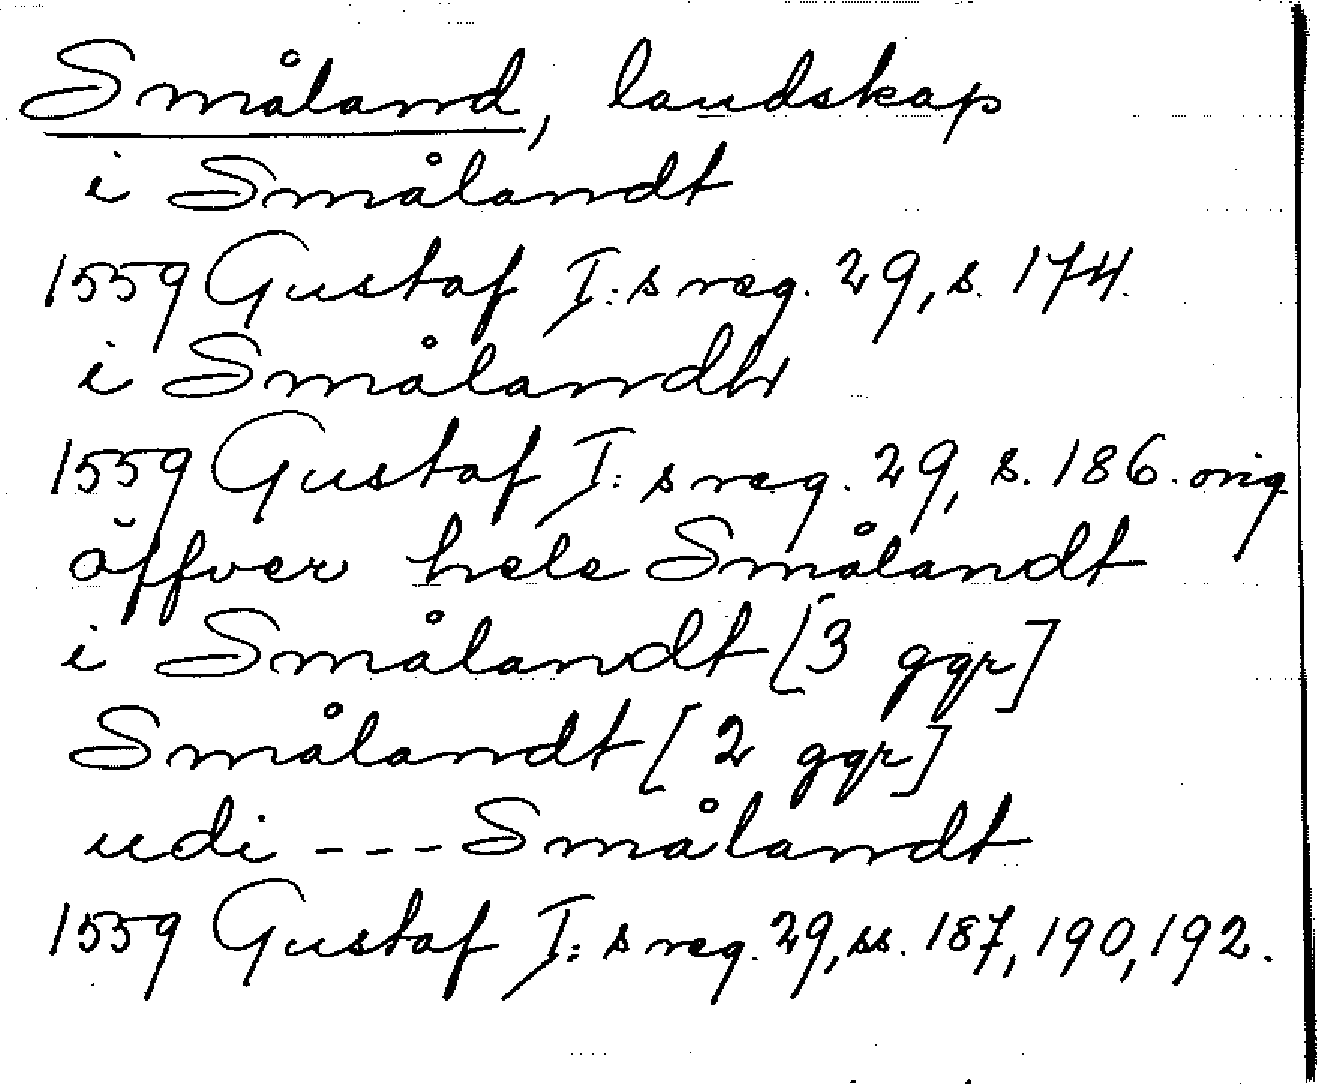 Småland, landskap
i Smålandt
1559 Gustaf I:s reg. 29, s. 174.
i Smålandh
1559 Gustaf I:s reg. 29, s. 186. orig
öffver hele Smålandt
i Smålandt [3 ggr]
Smålandt [2 ggr]
udi --- Smålandt
1559 Gustaf I:s reg. 29, ss. 187, 190, 192.